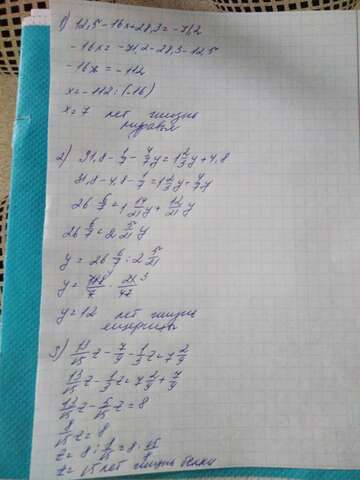 1) 12,5-16x+28,3=-71,2
-16x=-71,2-28,3-12,5
-16x=-112
x=-112:(-16)
x=7 лет жизнь
муравья
2) 31,8-1/7-4/7y=1 2/3y+4,8
31,8-4,8-1/7=1 2/3y+4/7y
26 6/7=1 14/21y+12/21y
26 6/7=2 5/21y
y=26 6/7:2 5/21
y=188/7·21/47
y=12 лет жизни
ящерицы
3) 13/15z-7/9-1/3z=7 2/9
13/15z-1/3z=7 2/9+7/9
13/15z-5/15z=8
8/15z=8
z=8:8/15=8·15/8
z=15 лет жизнь белки